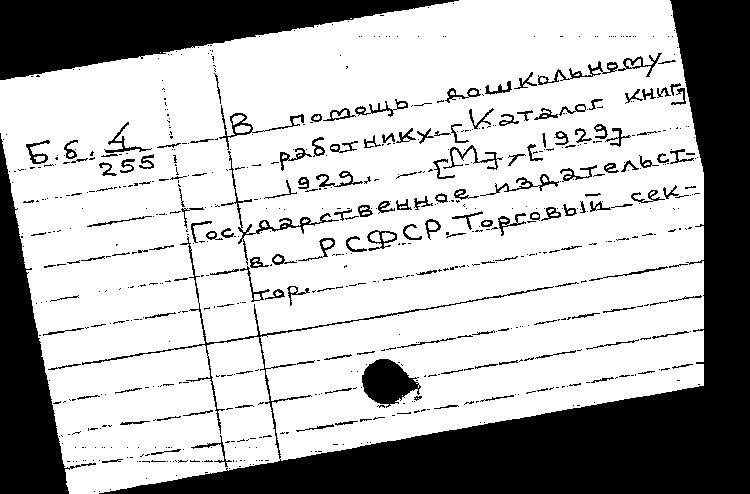 Б.б. 4/255
В помощь дошкольному
работнику. [Каталог книг]
1929. [М], [1929]
Государственное издательст-
во РСФСР. Торговый сек-
тор.